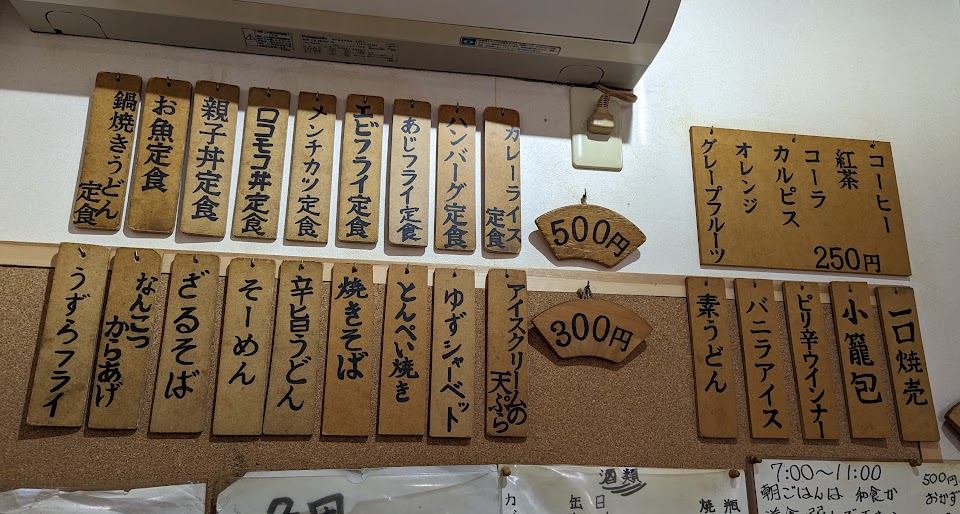 コーヒー
紅茶
コーラ
カルピス
オレンジ
グレープフルーツ
250円
500円
カレーライス定食
ハンバーグ定食
あじフライ定食
エビフライ定食
メンチカツ定食
ロコモコ丼定食
親子丼定食
お魚定食
鍋焼きうどん定食
一口焼売
小籠包
ピリ辛ウインナー
バニラアイス
素うどん
300円
アイスクリームの天ぷら
ゆずシャーベット
とんぺい焼き
焼きそば
辛旨うどん
そーめん
ざるそば
なんこつからあげ
うずらフライ
酒類
焼瓶
7:00～11:00
朝ごはんは 和食か
500円
おかず